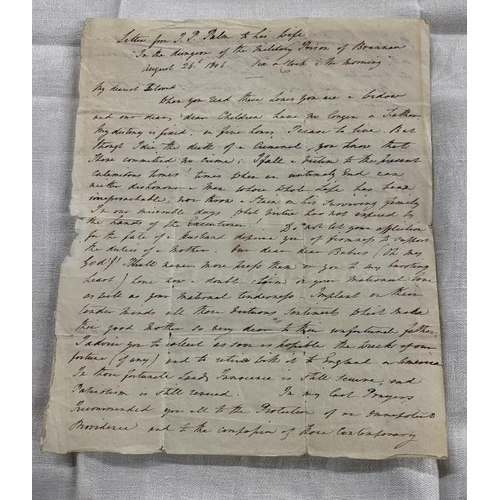 Letter from J. P. Palm to his Wife
In the dungeon of the Military Prison of Braunau
August 26th 1806 Six o'Clock in the morning
My dearest Beloved
When you read these Lines you are a widow
and our dear, dear Children have no longer a Father
My destiny is fixed: in five hours, I cease to live. But
though I die the death of a Criminal, you know that
I have committed no Crime; I fall a Victim to the present
Calamitous times; times when an untimely End can
neither dishonour a Man whose whole Life has been
irreproachable, nor throw a Stain on his Surviving family
In our miserable days what Virtue has not expired by
the hands of the Executioner. Do not let your affliction
for the fate of a Husband deprive you of firmness to support
the duties of a mother. Our dear dear Babies (Oh my
God!) I Shall never more press them or you to my
heart) have now a double Claim on your Maternal Love
as well as your maternal tenderness. Implant on their
tender minds all those Virtuous Sentiments which make
their good Mother so very dear to their unfortunate father.
I advise you to collect as soon as possible the Wreck of our
fortune (if any) and to retire with it to England or America
In those fortunate Lands Innocence is Still Secure, and
Patriotism is still revered. In my last Prayers
I recommended you all to the Protection of an Omnipotent
Providence and to the compassion of those Contemporary